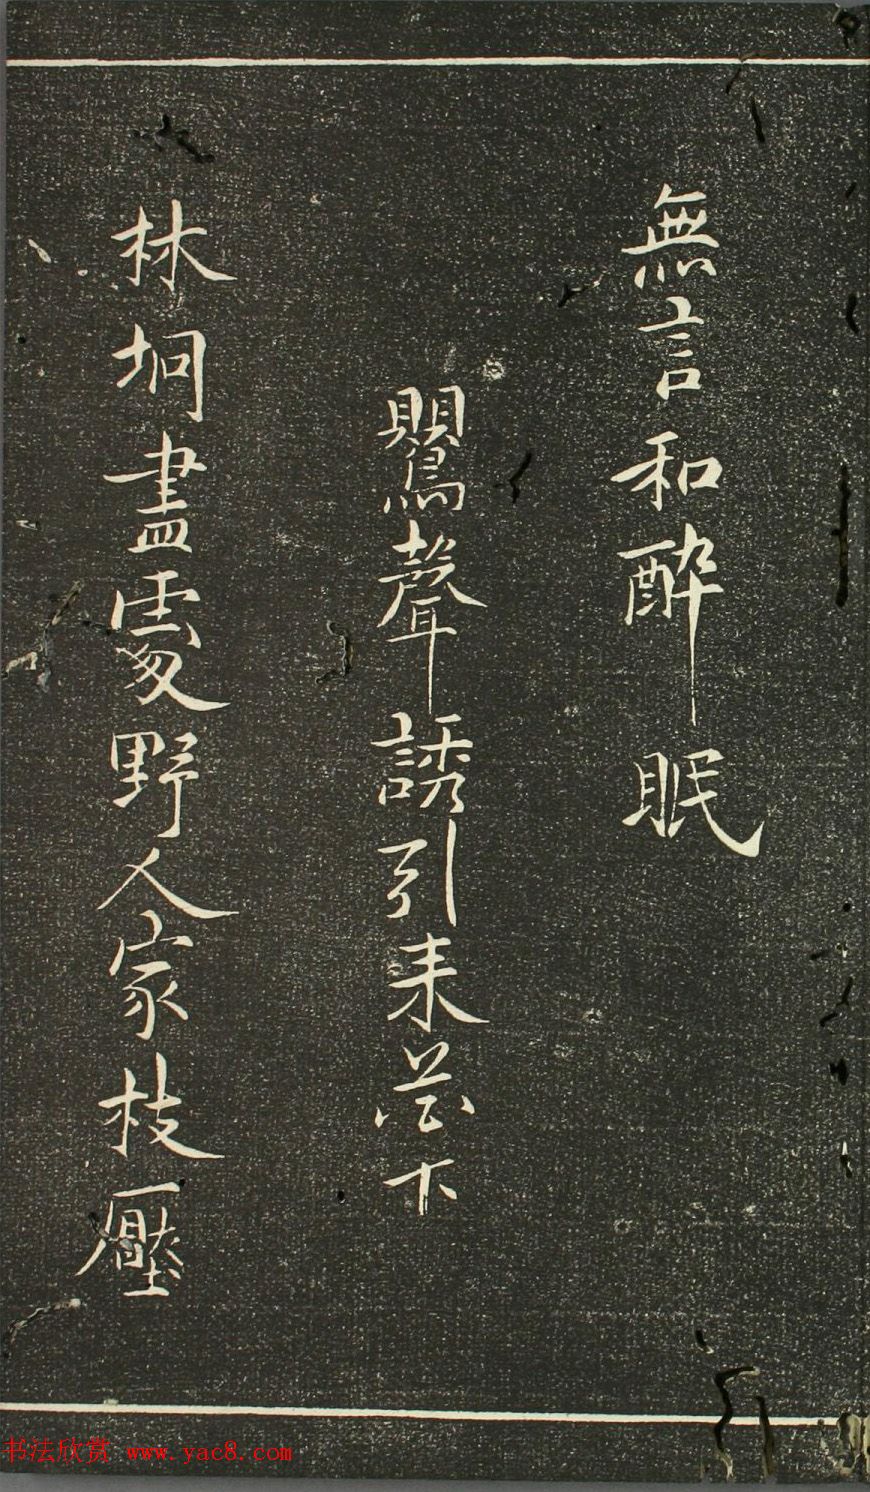 無言和醉眠
鸎聲誘引来花下
林坰盡處野人家枝壓
书法欣赏 www.yac8.com